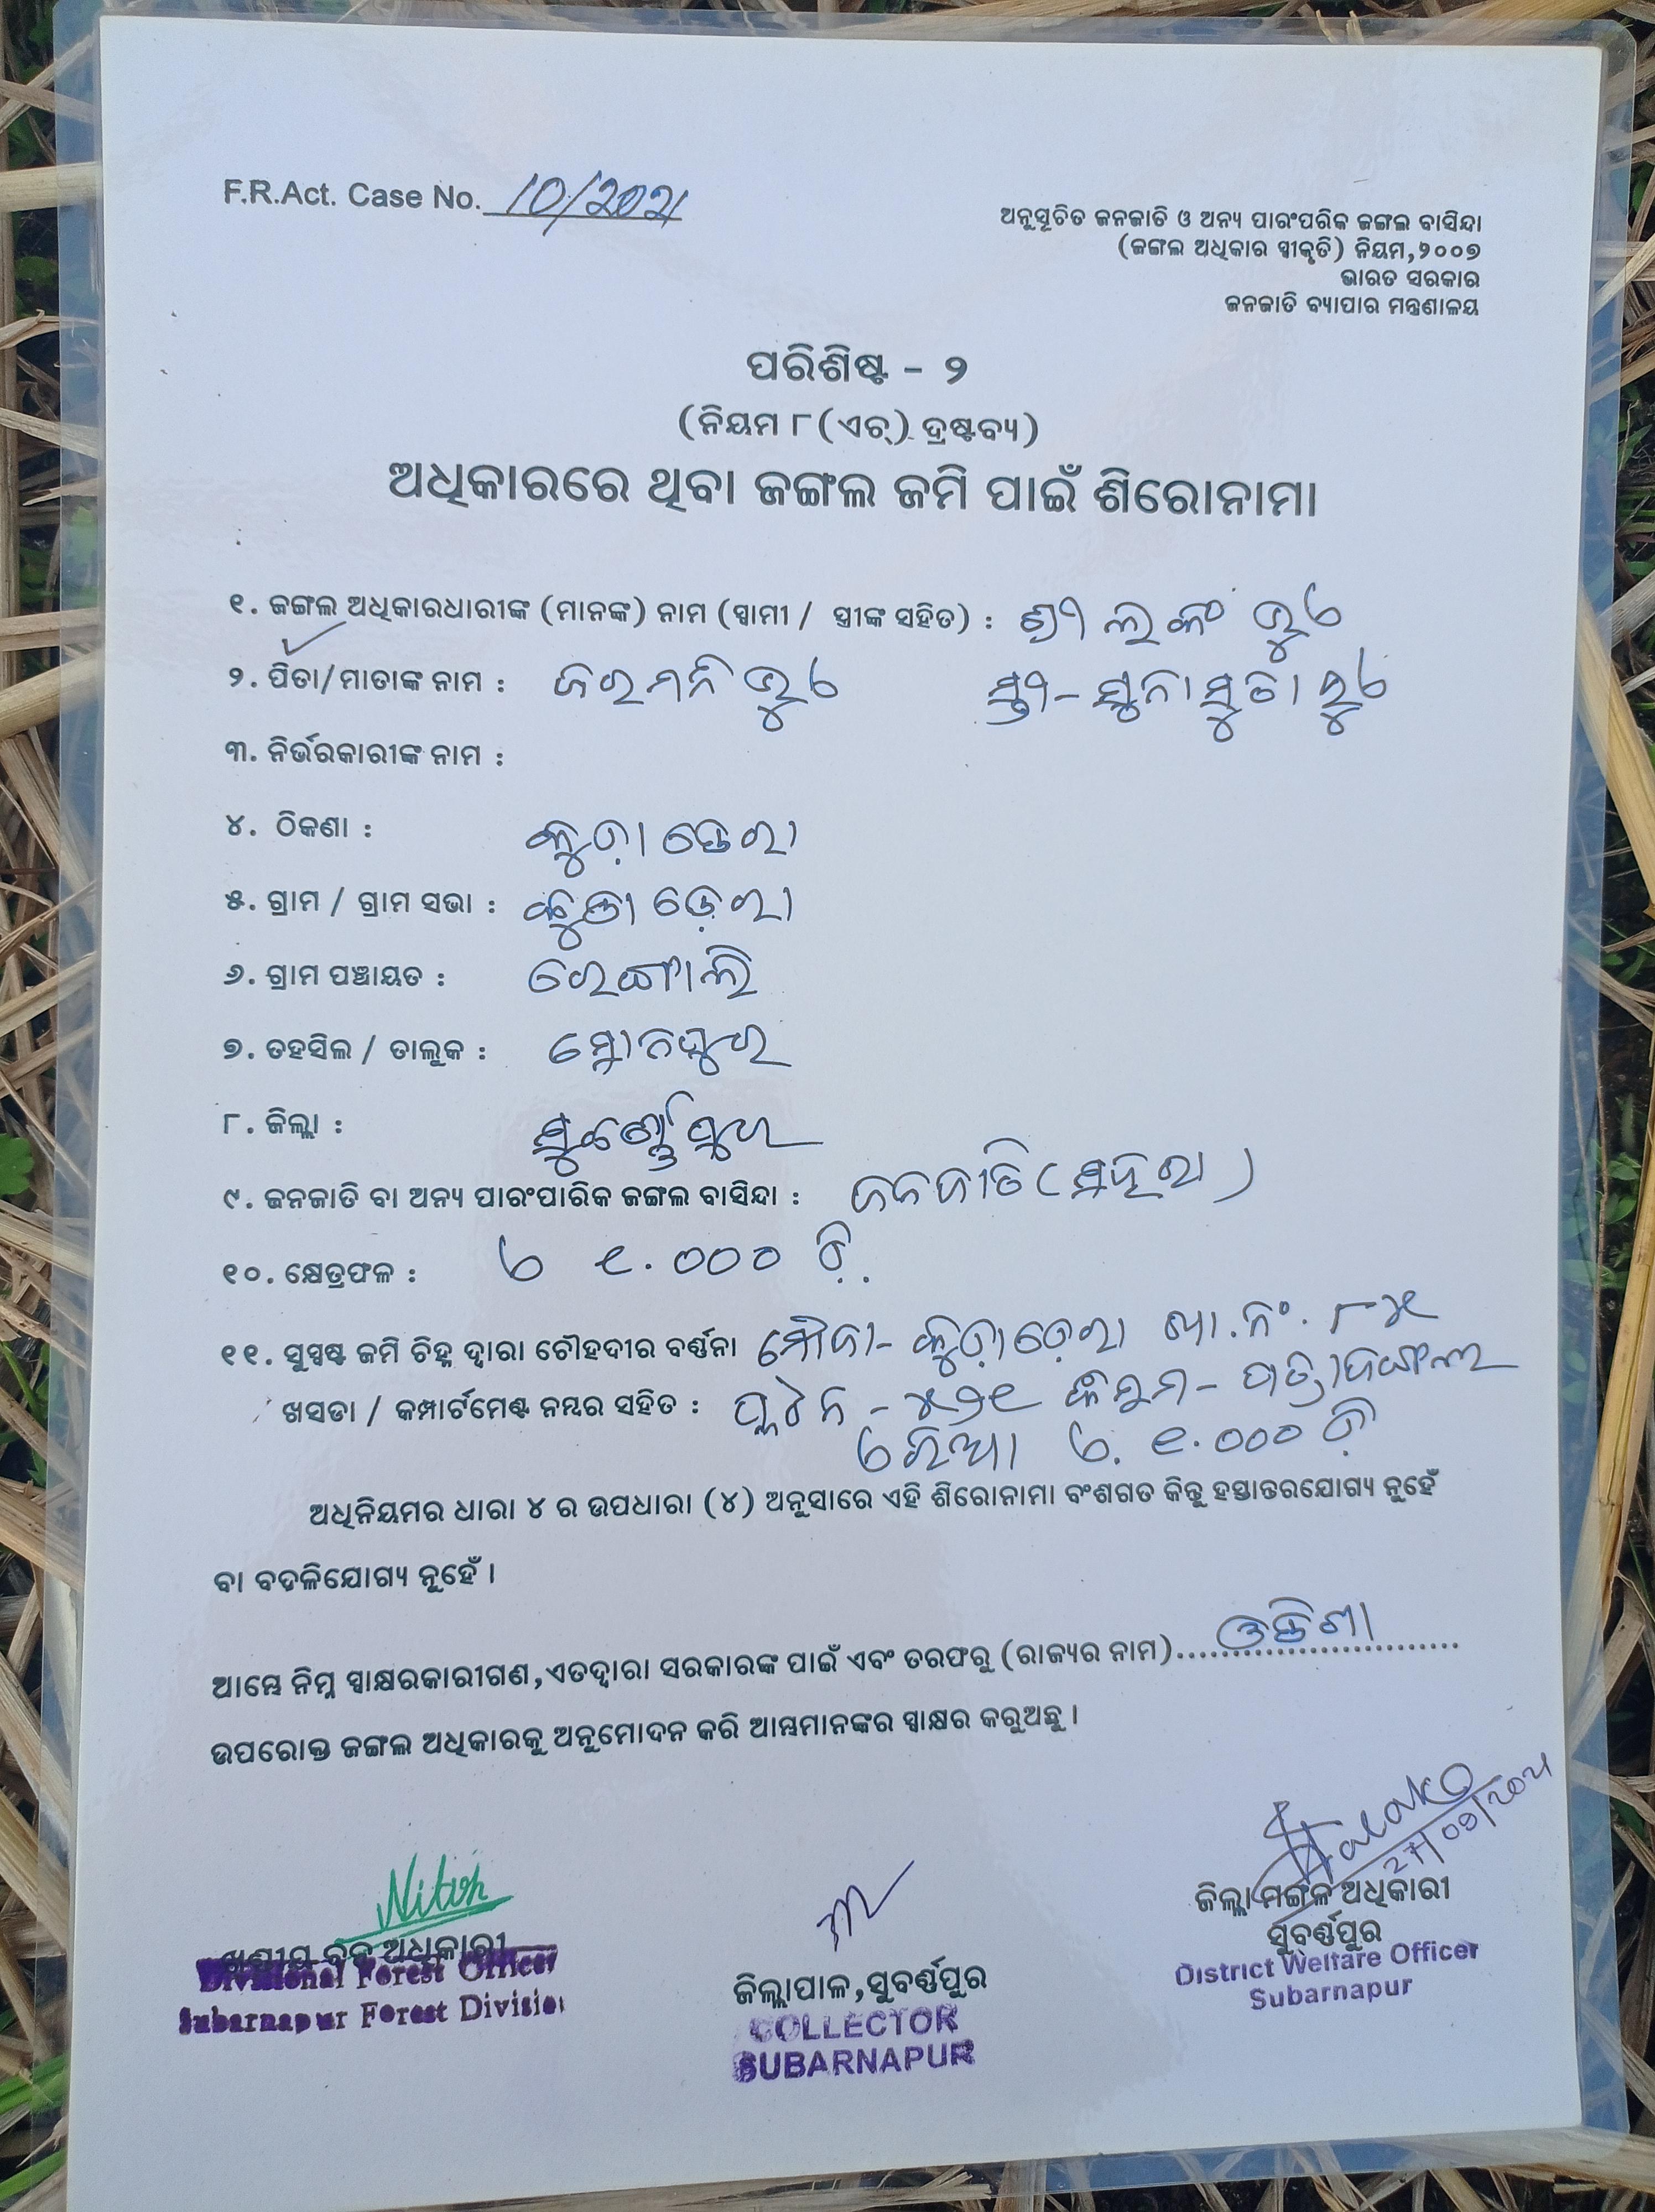 F.R.Act. Case No. 10/2021
ଅନୁସୂଚିତ ଜନଜାତି ଓ ଅନ୍ୟ ପାରଂପରିକ ଜଙ୍ଗଲ ବାସିନ୍ଦା
(ଜଙ୍ଗଲ ଅଧିକାର ସ୍ୱୀକୃତି) ନିୟମ,୨୦୦୭
ଭାରତ ସରକାର
ଜନଜାତି ବ୍ୟାପାର ମନ୍ତ୍ରଣାଳୟ
ପରିଶିଷ୍ଟ - ୨
(ନିୟମ ୮(ଏଚ୍) ଦ୍ରଷ୍ଟବ୍ୟ)
ଅଧିକାରରେ ଥିବା ଜଙ୍ଗଲ ଜମି ପାଇଁ ଶିରୋନାମା
୧. ଜଙ୍ଗଲ ଅଧିକାରଧାରୀଙ୍କ (ମାନଙ୍କ) ନାମ (ସ୍ୱାମୀ / ସ୍ତ୍ରୀଙ୍କ ସହିତ) : ଶ୍ରୀ
୨. ପିତା/ମାତାଙ୍କ ନାମ : ସ୍ତ୍ରୀ-
୩. ନିର୍ଭରକାରୀଙ୍କ ନାମ :
୪. ଠିକଣା :
୫. ଗ୍ରାମ / ଗ୍ରାମ ସଭା :
୬. ଗ୍ରାମ ପଞ୍ଚାୟତ : ରେଙ୍ଗାଲି
୭. ତହସିଲ / ତାଲୁକ : ସୋନପୁର
୮. ଜିଲ୍ଲା : ସୁବର୍ଣ୍ଣପୁର
୯. ଜନଜାତି ବା ଅନ୍ୟ ପାରଂପାରିକ ଜଙ୍ଗଲ ବାସିନ୍ଦା : ଜନଜାତି
୧୦. କ୍ଷେତ୍ରଫଳ : ୧.୦୦୦ ଡ଼ି.
୧୧. ସୁସ୍ପଷ୍ଟ ଜମି ଚିହ୍ନ ଦ୍ୱାରା ଚୌହଦୀର ବର୍ଣ୍ଣନା ମୌଜା- ଖା.ନଂ. ୮୫
ଖସଡା / କମ୍ପାର୍ଟମେଣ୍ଟ ନମ୍ବର ସହିତ : ପ୍ଲଟ ନଂ - ୪୨୧ କିସମ-
୧.୦୦୦ ଡ଼ି
ଅଧିନିୟମର ଧାରା ୪ ର ଉପଧାରା (୪) ଅନୁସାରେ ଏହି ଶିରୋନାମା ବଂଶଗତ କିନ୍ତୁ ହସ୍ତାନ୍ତରଯୋଗ୍ୟ ନୁହେଁ
ବା ବଦଳିଯୋଗ୍ୟ ନୁହେଁ ।
ଆମ୍ଭେ ନିମ୍ନ ସ୍ୱାକ୍ଷରକାରୀଗଣ,ଏତଦ୍ୱାରା ସରକାରଙ୍କ ପାଇଁ ଏବଂ ତରଫରୁ (ରାଜ୍ୟର ନାମ)....ଓଡ଼ିଶା....
ଉପରୋକ୍ତ ଜଙ୍ଗଲ ଅଧିକାରକୁ ଅନୁମୋଦନ କରି ଆମ୍ଭମାନଙ୍କର ସ୍ୱାକ୍ଷର କରୁଅଛୁ ।
27/09/2021
ଖଣ୍ଡୀୟ ବନ ଅଧିକାରୀ
Divisional Forest Officer
Subarnapur Forest Division
ଜିଲ୍ଲାପାଳ,ସୁବର୍ଣ୍ଣପୁର
COLLECTOR
SUBARNAPUR
ଜିଲ୍ଲା ମଙ୍ଗଳ ଅଧିକାରୀ
ସୁବର୍ଣ୍ଣପୁର
District Welfare Officer
Subarnapur